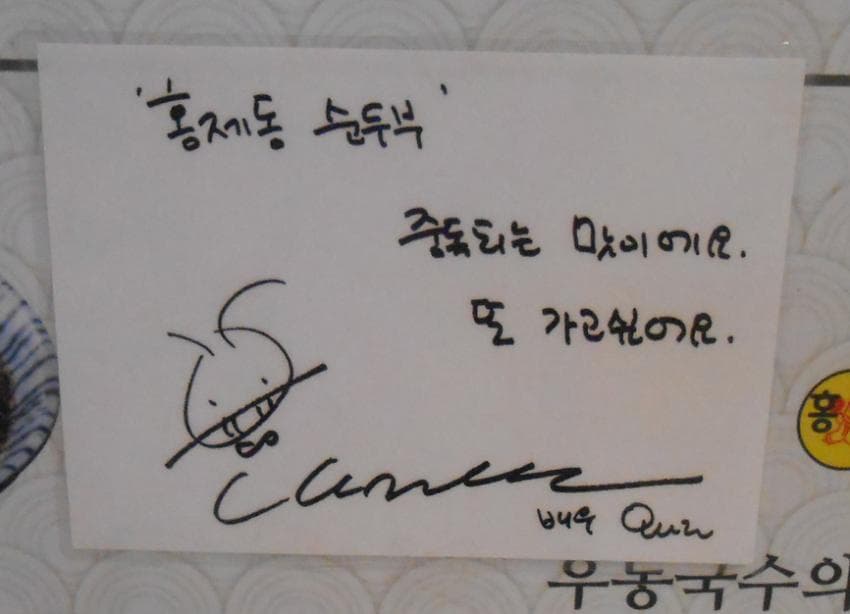 '홍제동 순두부'
중독되는 맛이에요.
또 가고싶어요.
배우
홍
우동국수의